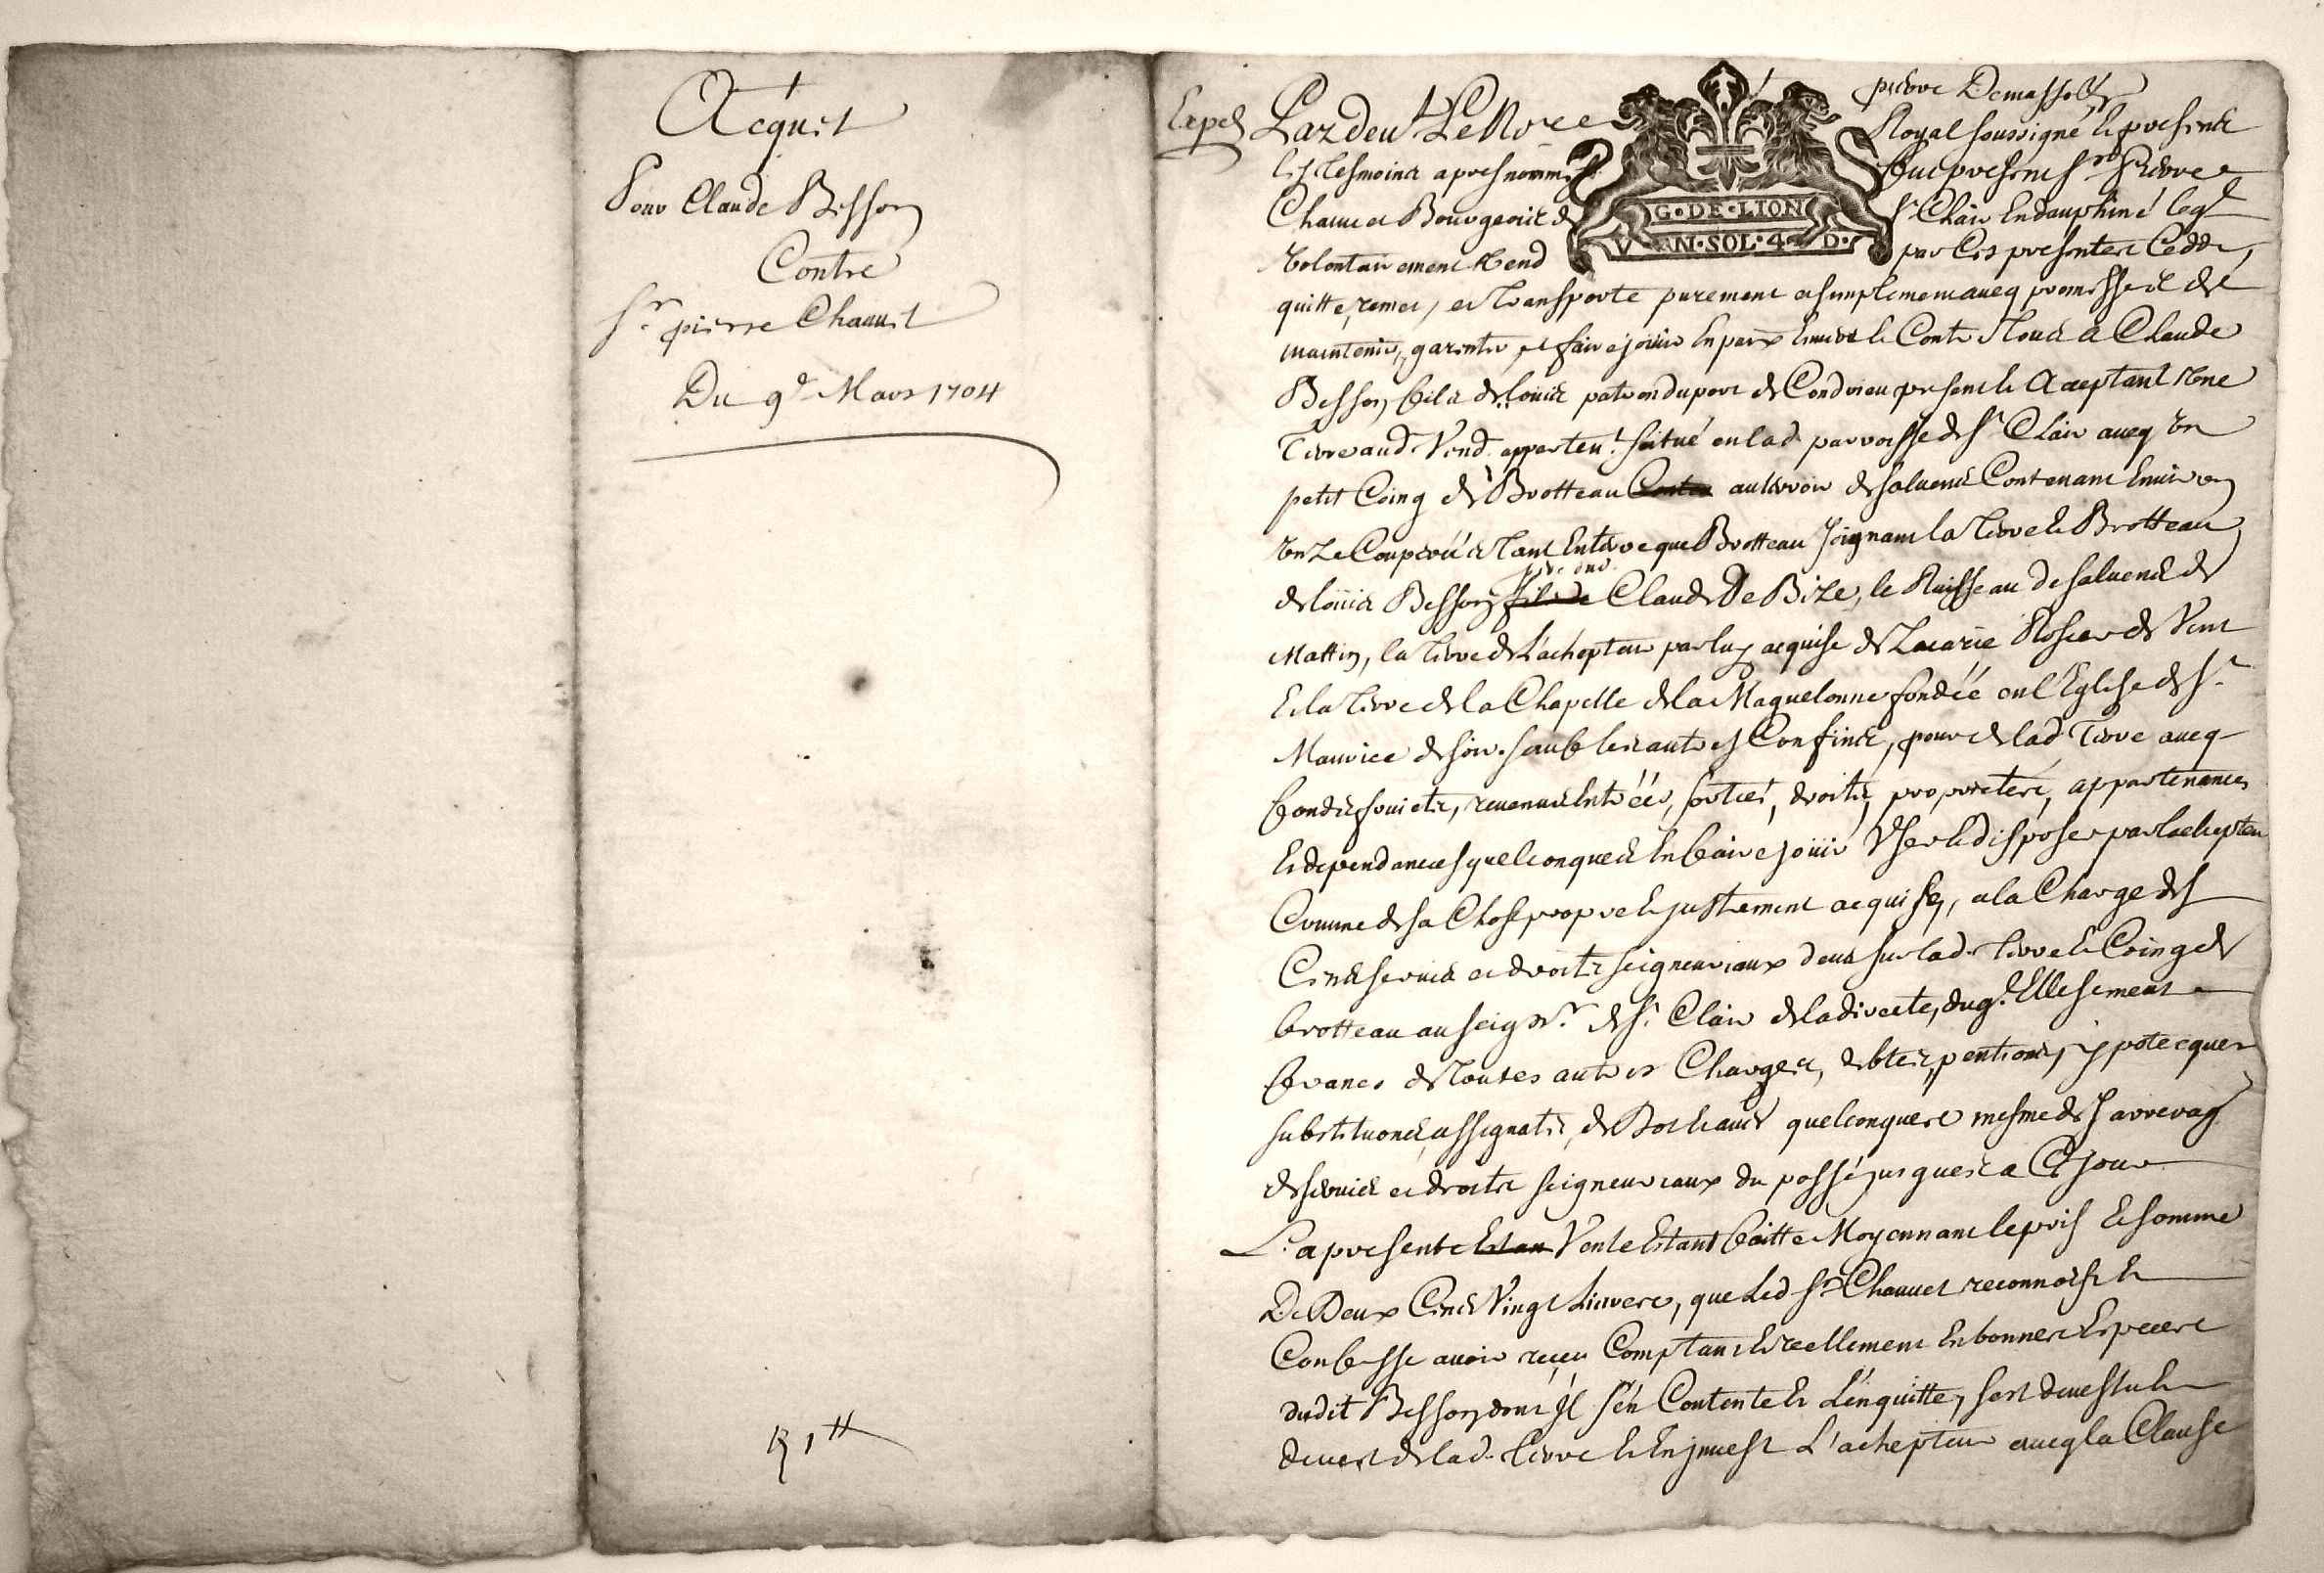 Acquit
Pour Claude Besson
Contre
Sr pierre Chauuet
Du 9e Mars 1704
R 1 tt
Exped
Pardeut Le No.re pierre Demassoll
Royal soussigné & presents
les tesmoins apres nommes fut present Sr Pierre
G·DE·LION
VN·SOL·4·D·
Chauuet Bourgeois de St Clair en dauphiné leql
volontairement vend par ces presentes cedde,
quitte, remet, et transporte purement et simplement aueq promesse de
maintenir, garentir, et faire jouir en paix enuers & Contre tous a Claude
Besson fils de louis patron du port de Condrieu present & acceptant vne
Terre aud. Vend. apparten.t scitué en lad. parroisse de St Clair aueq vn
petit Coing de Brotteau au terroir de saluens Contenant Enuiron
onze Couperées tant en terre que Brotteau Joignant la terre & Brotteau
de loüis Besson, Claude De Bize, le Ruisseau de saluens de
Mattin, la terre de L'achepteur par luy acquise de Zacarie Rosier de Vent
Et la terre de la Chapelle de la Maguelonne fondéé en l'Eglise de St
Maurice de soir. sauf les autres Confins, pour de lad Terre aueq
fonds, fruicts, reuenus, Entréés, sorties, droits, proprietes, appartenances
Et dependances quelconques En faire jouir Vser & disposer par lachepteur
Comme de sa Chose propre & justement acquise, a la Charge des
Cens seruis et droits seigneuriaux deus sur lad. terre & Coing de
brotteau au seigr. de St Clair de la directe, dug.l Ellesement
francs de toutes autres Charges, debtes, pentions, ypotecques
substitutions, assignats, de Bos & auts quelconques mesme des arrerag
de seruis et droits seigneuriaux du passé jusques a Ce jour
La presente Vente Estant faitte Moyennant le prix & somme
De Deux Cens Vingt Liures, que Led Sr Chauuet reconnoist &
Confesse auoir reçeu Comptant & reellement En bonnes Especes
dudit Besson dont Jl s'en Contente & L'en quitte, sest deuestu &
deuest de lad. terre & En jnuest L'achepteur aueq la Clause